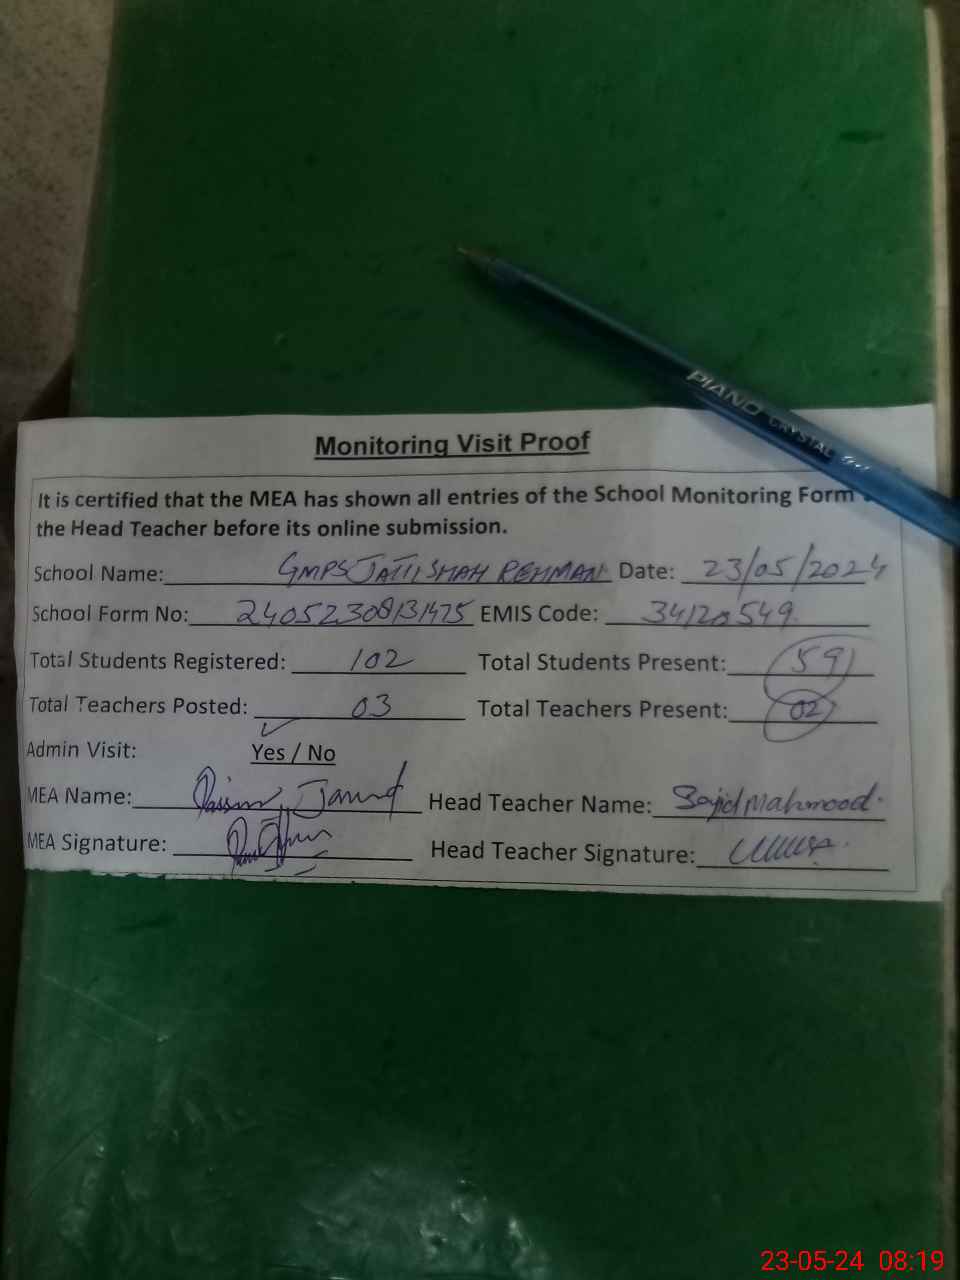 PIANO CRYSTAL
Monitoring Visit Proof
It is certified that the MEA has shown all entries of the School Monitoring Form
the Head Teacher before its online submission.
School Name: GMPS JATTI SHAH REHMAN Date: 23/05/2024
School Form No: 24052308131475 EMIS Code: 34120549
Total Students Registered: 102 Total Students Present: 59
Total Teachers Posted: 03 Total Teachers Present: 02
Admin Visit: Yes / No
MEA Name: Head Teacher Name: Sajid Mahmood.
MEA Signature: Head Teacher Signature:
23-05-24 08:19